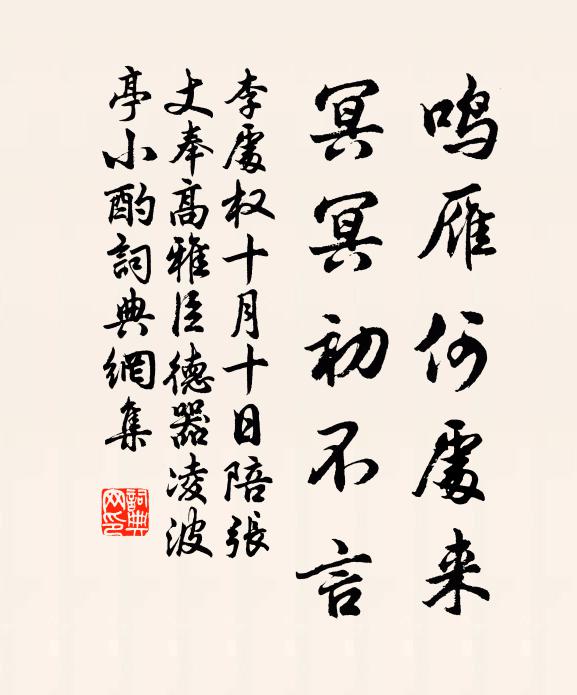 鸣雁何處来
冥冥初不言
李處权十月十日陪張
丈奉高雅臣德器凌波
亭小酌詞典網集
詞典网印